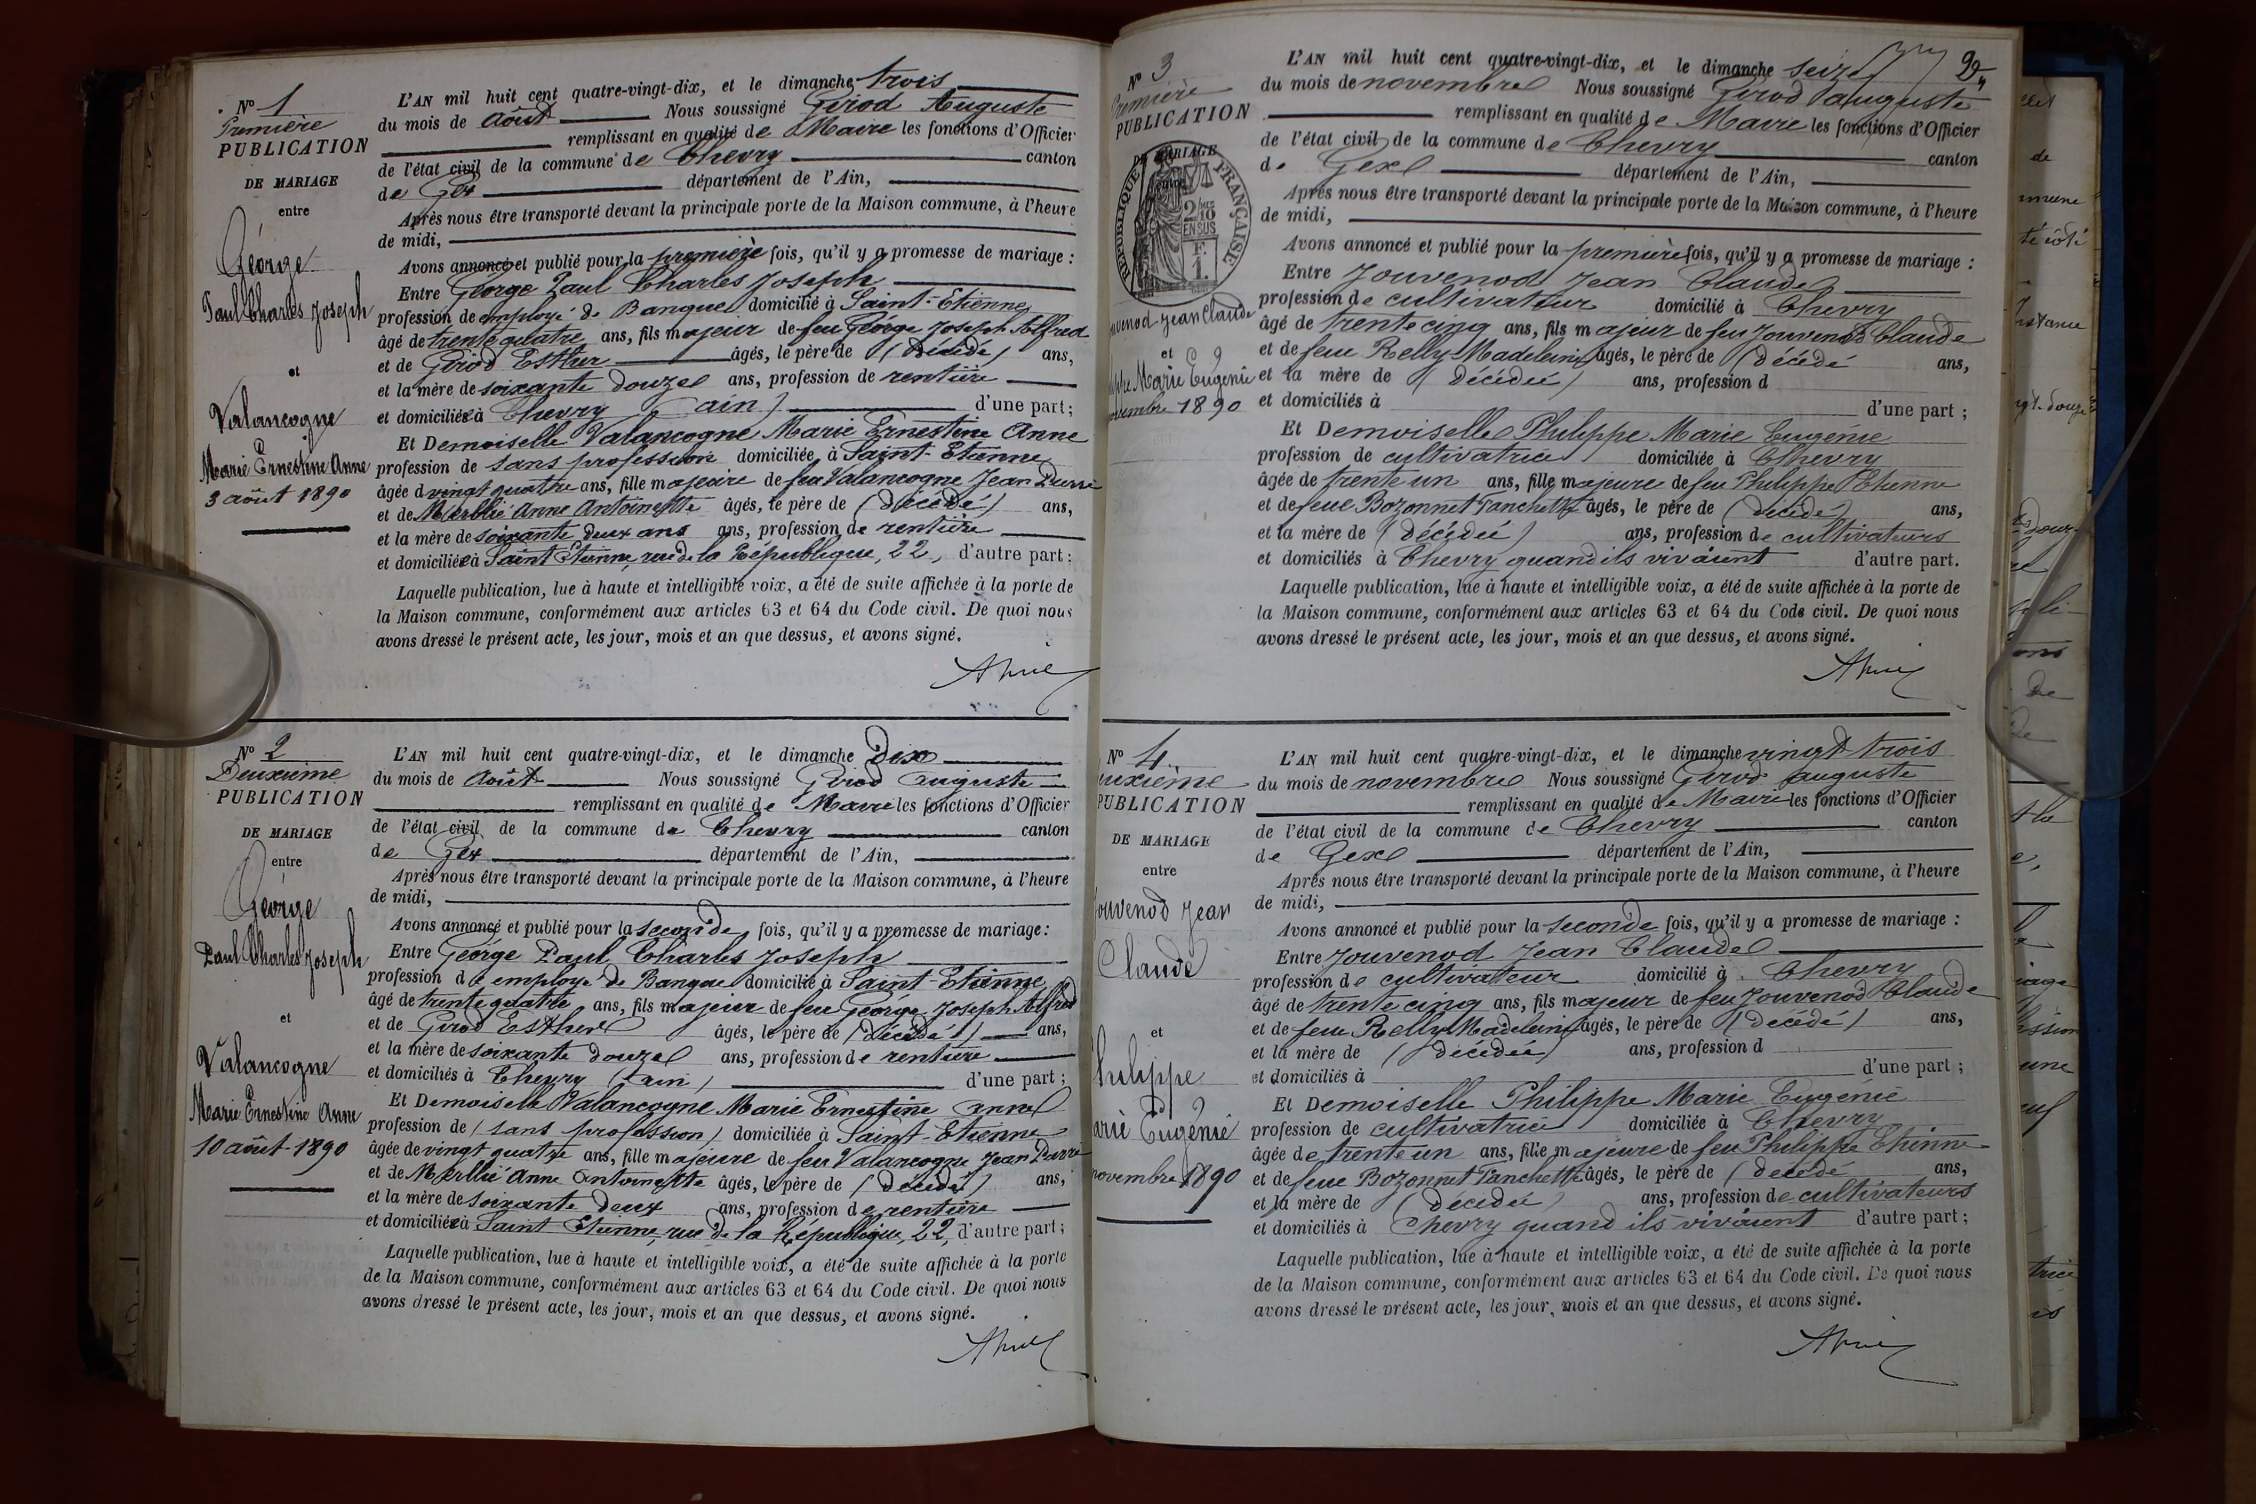 N° 1
Première
PUBLICATION
DE MARIAGE
entre
Géorge
Paul Charles Joseph
et
Valancogne
Marie Ernestine Anne
3 août 1890
L'AN mil huit cent quatre-vingt-dix, et le dimanche trois
du mois de Août Nous soussigné Girod Auguste
remplissant en qualité de Maire les fonctions d'Officier
de l'état civil de la commune de Chevry canton
de Gex département de l'Ain,
Après nous être transporté devant la principale porte de la Maison commune, à l'heure
de midi,
Avons annoncé et publié pour la première fois, qu'il y a promesse de mariage :
Entre Géorge Paul Charles Joseph
profession de employé de Banque domicilié à Saint-Etienne
âgé de trente quatre ans, fils majeur de feu Géorge Joseph Alfred
et de Girod Esther âgés, le père de (Décédé) ans,
et la mère de soixante douze ans, profession de rentière
et domiciliés à Chevry (ain) d'une part ;
Et Demoiselle Valancogne Marie Ernestine Anne
profession de sans profession domiciliée à Saint-Etienne
âgée d vingt quatre ans, fille majeure de feu Valancogne Jean Pierre
et de Merblié Anne Antoinette âgés, le père de (Décédé) ans,
et la mère de soixante deux ans ans, profession de rentière
et domiciliés à Saint Etienne, rue de la République, 22, d'autre part :
Laquelle publication, lue à haute et intelligible voix, a été de suite affichée à la porte de
la Maison commune, conformément aux articles 63 et 64 du Code civil. De quoi nous
avons dressé le présent acte, les jour, mois et an que dessus, et avons signé.
N° 2
Deuxième
PUBLICATION
DE MARIAGE
entre
Géorge
Paul Charles Joseph
et
Valancogne
Marie Ernestine Anne
10 août 1890
L'AN mil huit cent quatre-vingt-dix, et le dimanche Dix
du mois de Août Nous soussigné Girod Auguste
remplissant en qualité de Maire les fonctions d'Officier
de l'état civil de la commune de Chevry canton
de Gex département de l'Ain,
Après nous être transporté devant la principale porte de la Maison commune, à l'heure
de midi,
Avons annoncé et publié pour la seconde fois, qu'il y a promesse de mariage :
Entre Géorge Paul Charles Joseph
profession de employé de Banque domicilié à Saint-Etienne
âgé de trente quatre ans, fils majeur de feu Géorge Joseph Alfred
et de Girod Esther âgés, le père de (Décédé) ans,
et la mère de soixante douze ans, profession de rentière
et domiciliés à Chevry (ain) d'une part ;
Et Demoiselle Valancogne Marie Ernestine Anne
profession de (sans profession) domiciliée à Saint-Etienne
âgée de vingt quatre ans, fille majeure de feu Valancogne Jean Pierre
et de Merblié Anne Antoinette âgés, le père de (Décédé) ans,
et la mère de soixante deux ans, profession de rentière
et domiciliés à Saint Etienne, rue de la République, 22, d'autre part ;
Laquelle publication, lue à haute et intelligible voix, a été de suite affichée à la porte
de la Maison commune, conformément aux articles 63 et 64 du Code civil. De quoi nous
avons dressé le présent acte, les jour, mois et an que dessus, et avons signé.
N° 3
Première
PUBLICATION
DE MARIAGE
RÉPUBLIQUE FRANÇAISE
2/10
EN SUS
F.
1.
Jean Claude
et
Marie Eugénie
novembre 1890
L'AN mil huit cent quatre-vingt-dix, et le dimanche seize
du mois de novembre Nous soussigné Girod auguste
remplissant en qualité de Maire les fonctions d'Officier
de l'état civil de la commune de Chevry canton
de Gex département de l'Ain,
Après nous être transporté devant la principale porte de la Maison commune, à l'heure
de midi,
Avons annoncé et publié pour la première fois, qu'il y a promesse de mariage :
Entre Jouvenod Jean Claude
profession de cultivateur domicilié à Chevry
âgé de trente cinq ans, fils majeur de feu Jouvenod Claude
et de feue Relly Madeleine âgés, le père de (décédé ans,
et la mère de (décédée) ans, profession d
et domiciliés à d'une part ;
Et Demoiselle Philippe Marie Eugénie
profession de cultivatrice domiciliée à Chevry
âgée de trente un ans, fille majeure de feu Philippe Etienne
et de feue Bozonnet Fanchette âgés, le père de (décédé) ans,
et la mère de (décédée) ans, profession de cultivateurs
et domiciliés à Chevry quand ils vivaient d'autre part.
Laquelle publication, lue à haute et intelligible voix, a été de suite affichée à la porte de
la Maison commune, conformément aux articles 63 et 64 du Code civil. De quoi nous
avons dressé le présent acte, les jour, mois et an que dessus, et avons signé.
N° 4
uxième
PUBLICATION
DE MARIAGE
entre
Jouvenod Jean
Claude
et
Philippe
Marie Eugénie
novembre 1890
L'AN mil huit cent quatre-vingt-dix, et le dimanche vingt trois
du mois de novembre Nous soussigné Girod auguste
remplissant en qualité de Maire les fonctions d'Officier
de l'état civil de la commune de Chevry canton
de Gex département de l'Ain,
Après nous être transporté devant la principale porte de la Maison commune, à l'heure
de midi,
Avons annoncé et publié pour la seconde fois, qu'il y a promesse de mariage :
Entre Jouvenod Jean Claude
profession de cultivateur domicilié à Chevry
âgé de trente cinq ans, fils majeur de feu Jouvenod Claude
et de feue Relly Madeleine âgés, le père de (décédé) ans,
et la mère de (décédée) ans, profession d
et domiciliés à d'une part ;
Et Demoiselle Philippe Marie Eugénie
profession de cultivatrice domiciliée à Chevry
âgée de trente un ans, fille majeure de feu Philippe Etienne
et de feue Bozonnet Fanchette âgés, le père de (décédé ans,
et la mère de (décédée) ans, profession de cultivateurs
et domiciliés à Chevry quand ils vivaient d'autre part ;
Laquelle publication, lue à haute et intelligible voix, a été de suite affichée à la porte
de la Maison commune, conformément aux articles 63 et 64 du Code civil. De quoi nous
avons dressé le présent acte, les jour, mois et an que dessus, et avons signé.